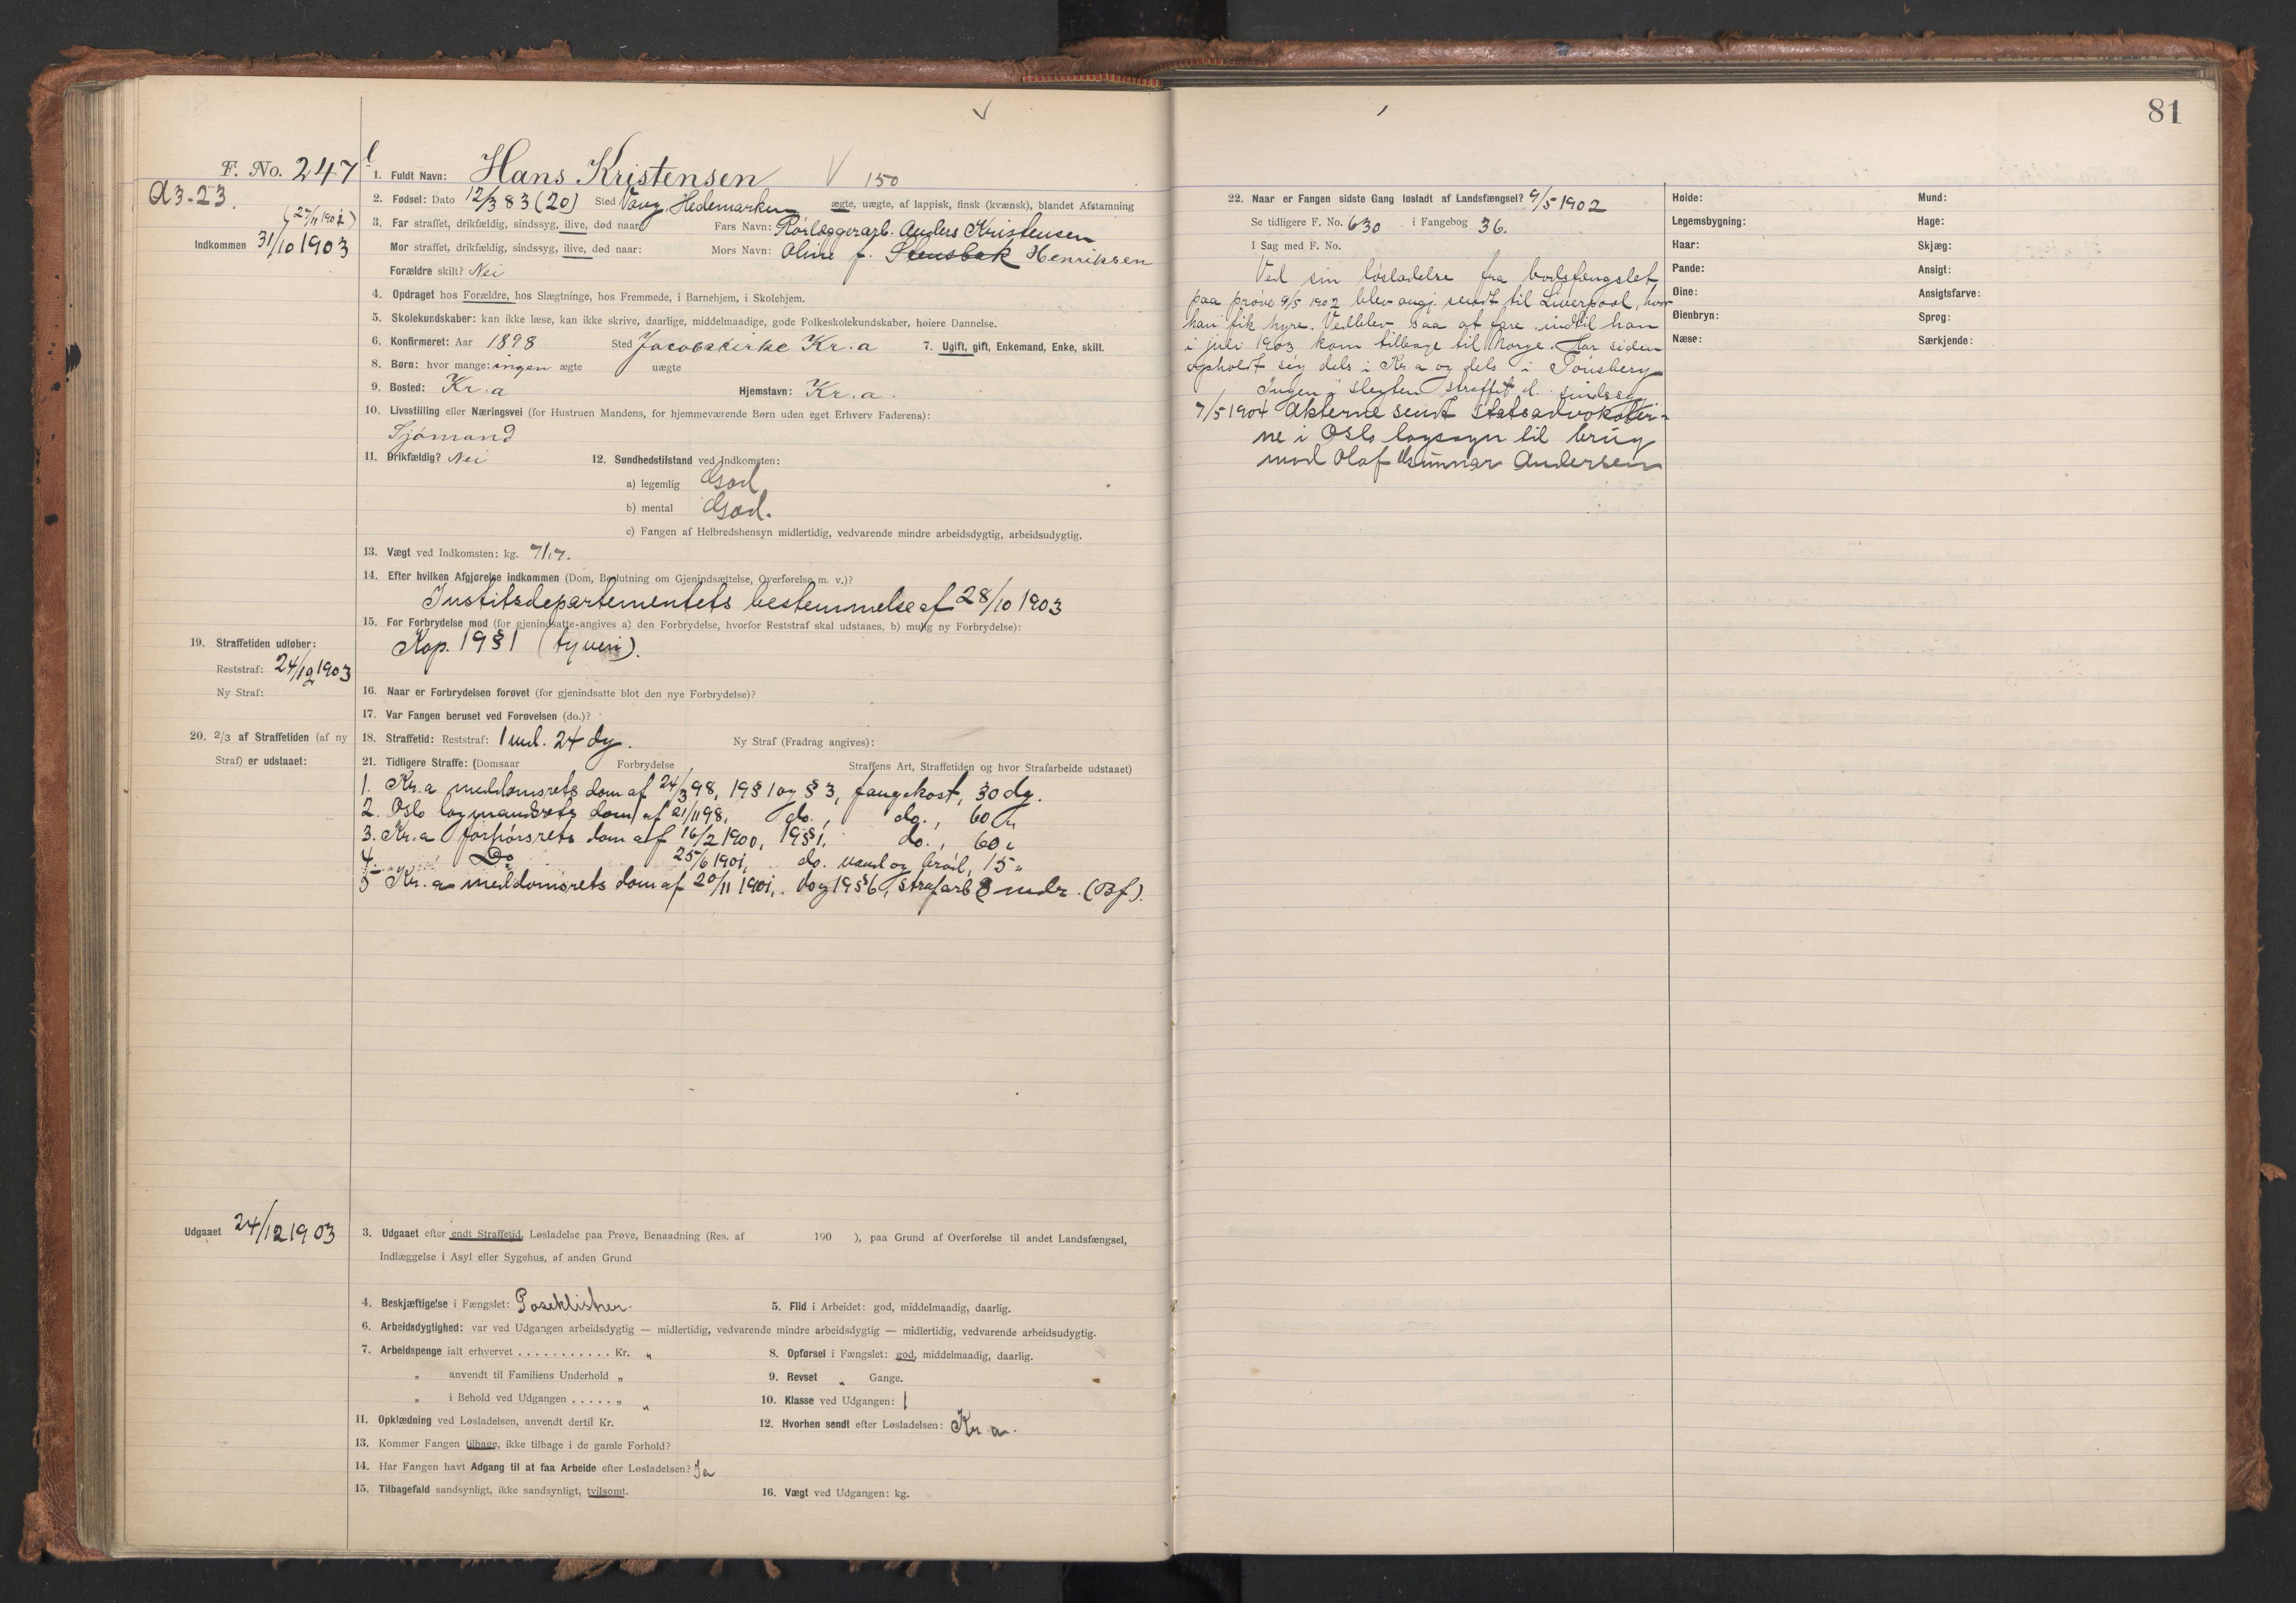 81
F. No. 247
A3-23.
(27/11 1901)
Indkommen 31/10 1903
1. Fuldt Navn: Hans Kristensen 150
2. Fødsel: Dato 12/3 83 (20) Sted Vang, Hedemarken ægte, uægte, af lappisk, finsk (kvænsk), blandet Afstamning
3. Far straffet, drikfældig, sindssyg, ilive, død naar: Fars Navn: Rörlæggerarb. Anders Kristensen
Mor straffet, drikfældig, sindssyg, ilive, død naar: Mors Navn: Oline f. Stensbak Henriksen
Forældre skilt? Nei
4. Opdraget hos Forældre, hos Slægtninge, hos Fremmede, i Barnehjem, i Skolehjem.
5. Skolekundskaber: kan ikke læse, kan ikke skrive, daarlige, middelmaadige, gode Folkeskolekundskaber, høiere Dannelse.
6. Konfirmeret: Aar 1898 Sted Jacobskirke Kr.a 7. Ugift, gift, Enkemand, Enke, skilt.
8. Børn: hvor mange: ingen ægte uægte
9. Bosted: Kr.a Hjemstavn: Kr.a.
10. Livsstilling eller Næringsvei (for Hustruen Mandens, for hjemmeværende Børn uden eget Erhverv Faderens):
Sjömand
11. Drikfældig? Nei 12. Sundhedstilstand ved Indkomsten:
a) legemlig God
b) mental God.
c) Fangen af Helbredshensyn midlertidig, vedvarende mindre arbeidsdygtig, arbeidsudygtig.
13. Vægt ved Indkomsten: kg. 71,7.
14. Efter hvilken Afgjørelse indkommen (Dom, Beslutning om Gjenindsættelse, Overførelse m. v.)?
Justitsdepartementets bestemmelse af 28/10 1903
15. For Forbrydelse mod (for gjenindsatte angives a) den Forbrydelse, hvorfor Reststraf skal udstaaes, b) mulig ny Forbrydelse):
Kap. 19 § 1 (tyveri).
19. Straffetiden udløber:
Reststraf: 24/12 1903
Ny Straf:
16. Naar er Forbrydelsen forøvet (for gjenindsatte blot den nye Forbrydelse)?
17. Var Fangen beruset ved Forøvelsen (do.)?
20. 2/3 af Straffetiden (af ny
Straf) er udstaaet:
18. Straffetid: Reststraf: 1 md. 24 dg. Ny Straf (Fradrag angives):
21. Tidligere Straffe: (Domsaar Forbrydelse Straffens Art, Straffetiden og hvor Strafarbeide udstaaet)
1. Kr.a meddomsrets dom af 24/3 98, 19 § 1 og § 3, fangekost, 30 dg.
2. Oslo lagmandsrets dom af 21/11 98, do., do., 60 "
3. Kr.a forhörsrets dom af 16/2 1900, 19 § 1, do., 60 "
4. Do 25/6 1901, do. vand og bröd, 15 "
5 Kr.a meddomsrets dom af 20/11 1901, do og 19 § 6, strafarb 8 mdr. (Bf).
Udgaaet 24/12 1903
3. Udgaaet efter endt Straffetid, Løsladelse paa Prøve, Benaadning (Res. af 190 ), paa Grund af Overførelse til andet Landsfængsel,
Indlæggelse i Asyl eller Sygehus, af anden Grund
4. Beskjæftigelse i Fængslet: Poseklistrer. 5. Flid i Arbeidet: god, middelmaadig, daarlig.
6. Arbeidsdygtighed: var ved Udgangen arbeidsdygtig — midlertidig, vedvarende mindre arbeidsdygtig — midlertidig, vedvarende arbeidsudygtig.
7. Arbeidspenge ialt erhvervet . . . . . . . . . . . Kr. " 8. Opførsel i Fængslet: god, middelmaadig, daarlig.
" anvendt til Familiens Underhold " 9. Revset " Gange.
" i Behold ved Udgangen . . . . . " " 10. Klasse ved Udgangen: 1
11. Opklædning ved Løsladelsen, anvendt dertil Kr. 12. Hvorhen sendt efter Løsladelsen: Kr a.
13. Kommer Fangen tilbage, ikke tilbage i de gamle Forhold?
14. Har Fangen havt Adgang til at faa Arbeide efter Løsladelsen? Ja
15. Tilbagefald sandsynligt, ikke sandsynligt, tvilsomt. 16. Vægt ved Udgangen: kg.
22. Naar er Fangen sidste Gang løsladt af Landsfængsel? 9/5 1902
Se tidligere F. No. 630 i Fangebog 36.
I Sag med F. No.
Ved sin lösladelse fra bodsfængslet
paa pröve 9/5 1902 blev angj. sendt til Liverpool, hvor
han fik hyre. Vedblev saa at fare indtil han
i juli 1903 kom tilbage til Norge. Har siden
opholdt sig dels i Kr a og dels i Tönsberg
Ingen i slegten straffet el. sindssyg
7/5 1904 Akterne sendt statsadvokater-
ne i Oslo lagsogn til brug
mod Olaf Gunnar Andersen
Høide: Mund:
Legemsbygning: Hage:
Haar: Skjæg:
Pande: Ansigt:
Øine: Ansigtsfarve:
Øienbryn: Sprog:
Næse: Særkjende: